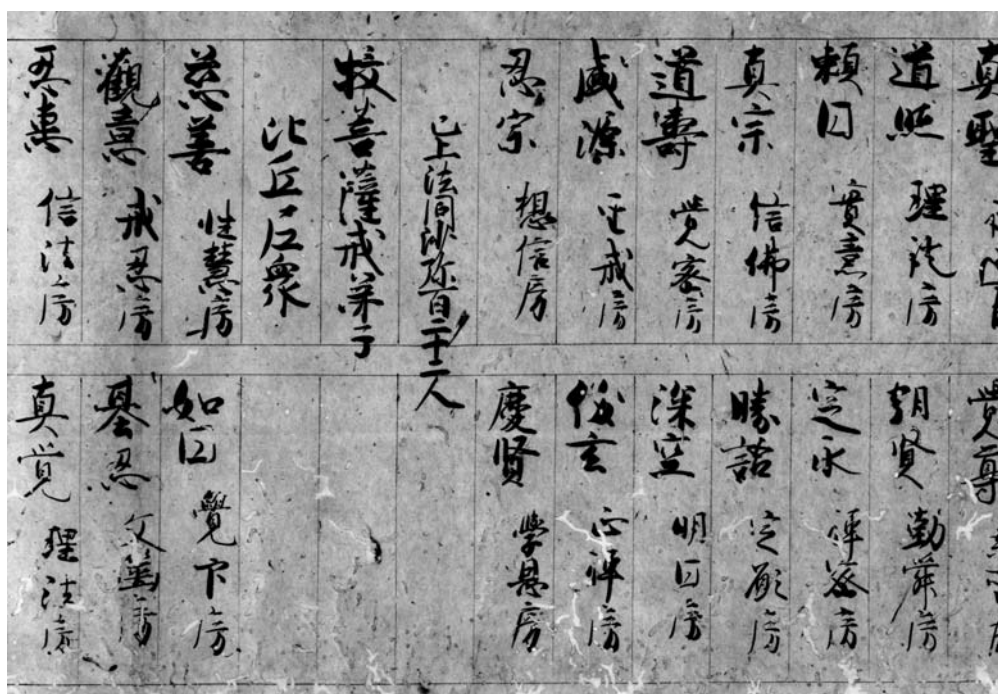 真聖
道照 理詮房
頼円 實意房
真宗 信佛房
道壽 覺密房
盛源 戒房
忍宗 想信房
已上法同沙弥百二十二人
授菩薩戒弟子
比丘尼衆
慈善 性慧房
觀意 戒忍房
忍恵 信法房
覺尊
朝賢 勤舜房
定永 禅房
勝 定願房
深空 明円房
俊玄 心禅房
慶賢 學恩房
如円 覺房
基忍 房
真覚 理法房